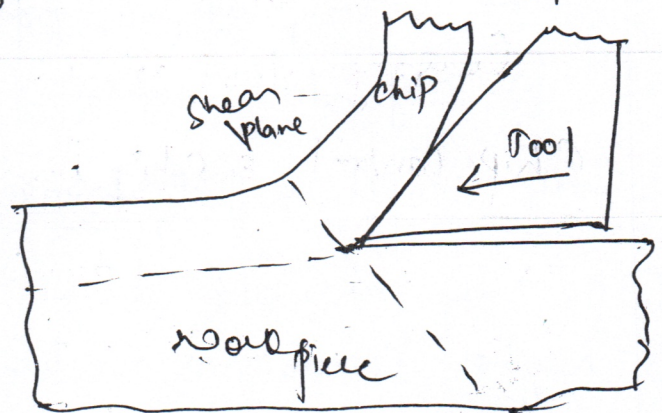 Shear
plane
chip
Tool
workpiece